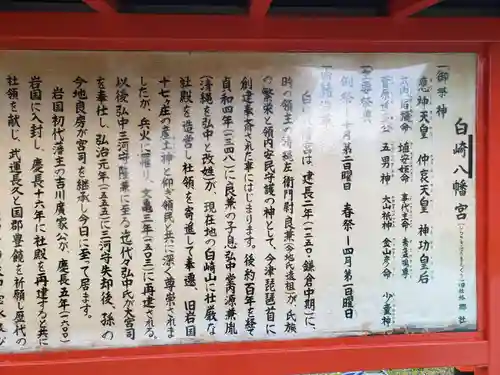 白崎八幡宮
旧社格 郷社
一、御祭神
應神天皇 仲哀天皇 神功皇后
埴安姫命 事代主命
菅原 公 五男神 大山祇神 金山彦命 少童神
一、祭
例祭ー十月第二日曜日 春祭ー四月第一日曜日
宮は、建長二年(一二五〇鎌倉中期)に、
時の領主の清縄左衛門尉良兼(今地氏遠祖)が、氏族
の繁栄と領内安民守護の神として、今津琵琶首に
創建奉斎された事にはじまります。後約百年を経て
貞和四年(一三四八)に良兼の子息、弘中常門源兼胤
(清縄を弘中と改姓)が、現在地の白崎山に社殿な
社殿を造営し社領を寄進して奉遷、旧岩国
十七ヶ庄の産土神と仰ぎ領民と共に深く尊崇されま
したが、兵火に罹り、文亀三年(一五〇三)に再建される。
以後弘中三河守隆兼に至る迄代々弘中氏が大宮司
を奉仕し、弘治元年(一五五五)三河守失却後、孫の
今地良房が宮司を継承し今日に至って居ます。
岩国初代藩主の吉川廣家公が、慶長五年(一六〇〇)
岩国に入封し、慶長十六年に社殿を再建すると共に
社領を献じ、武運長久と国郡豊饒を祈願し歴代の